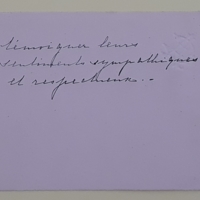 témoigner leurs
sentiments sympathiques
et respectueux.